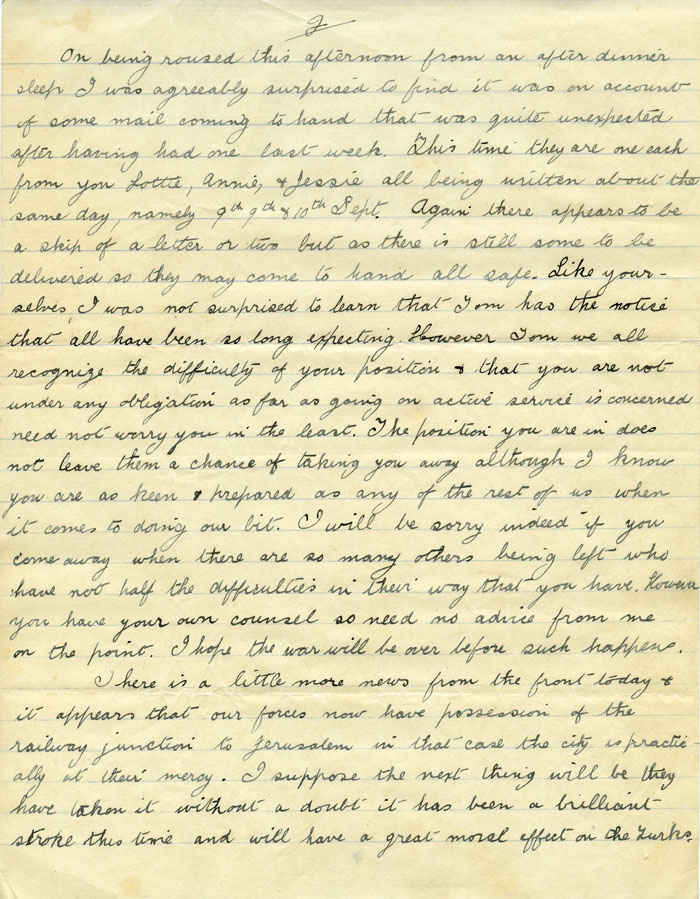 2
On being roused this afternoon from an after dinner
sleep I was agreeably surprised to find it was on account
of some mail coming to hand that was quite unexpected
after having had one last week. This time they are one each
from you Lottie, Annie, & Jessie all being written about the
same day, namely 9th 9th & 10th Sept. Again there appears to be
a skip of a letter or two but as there is still some to be
delivered so they may come to hand all safe. Like your-
selves, I was not surprised to learn that Tom has the notice
that all have been so long expecting. However Tom we all
recognize the difficulty of your position & that you are not
under any obligation as far as going on active service is concerned
need not worry you in the least. The position you are in does
not leave them a chance of taking you away although I know
you are as keen & prepared as any of the rest of us when
it comes to doing our bit. I will be sorry indeed if you
come away when there are so many others being left who
have not half the difficulties in their way that you have. However
you have your own counsel so need no advice from me
on the point. I hope the war will be over before such happens.
There is a little more news from the front today &
it appears that our forces now have possession of the
railway junction to Jerusalem in that case the city is practic-
ally at their mercy. I suppose the next thing will be they
have taken it without a doubt it has been a brilliant
stroke this time and will have a great moral effect on the Turks.